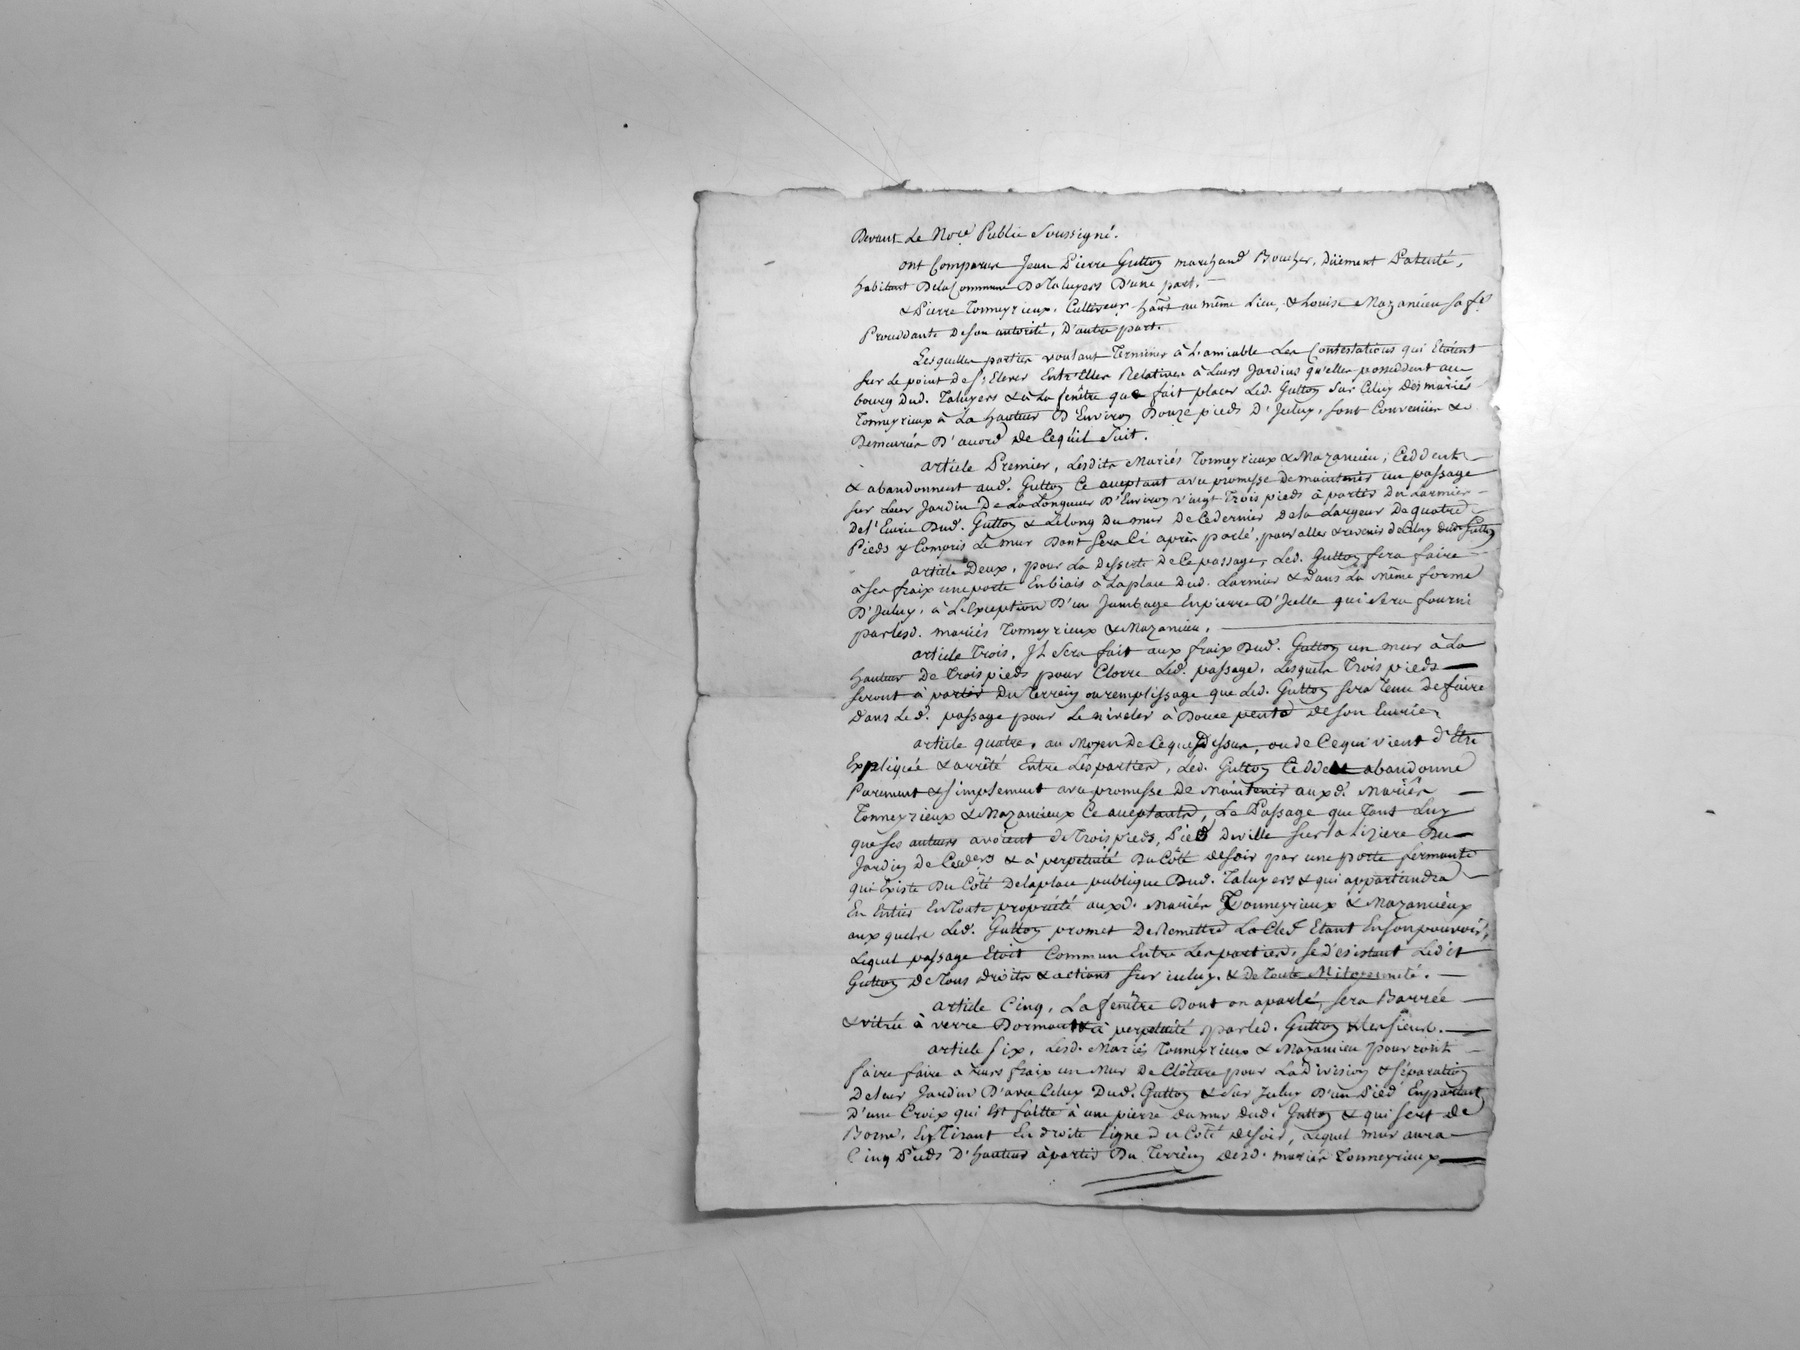 Devant Le Nore Public Soussigné.
ont Comparus Jean Pierre Gutton marchand Boucher, Düement Patenté,
habitant De la Commune De Taluyers D'une part.
& Pierre Tonneyrieux, Cultiveur hant au même Lieu, & Louise Mazancieu sa fe
Proceddante De son autorité, D'autre part.
Lesquelles parties voulant Terminer à L'amiable Les Contestations qui Etoient
sur Le point De s'Elever Entr'Elles Relatives à Leurs Jardins qu'elles posseddent au
bourg Dud. Taluyers & à La fenêtre que fait placer Led. Gutton sur Celuy Des mariés
Tonneyrieux à La hauteur D'Environ Douze pieds D'Iceluy, sont Convenües &
Demeurées D'acord De Ce qüil Suit.
article Premier, Lesdits Mariés Tonneyrieux & Mazancieu, Ceddent
& abandonnent aud. Gutton Ce aceptant avec promesse De maintenir un passage
sur Leur Jardin De La Longueur D'Environ vingt Trois pieds à partir Du Larmier
De l'Eurie Dud. Gutton & Le long Du mur De Ce dernier De la Largeur De quatre
Pieds y Compris Le mur Dont Sera Ci après parlé, pour aller & revenir de Celuy dud. Gutton
article Deux, pour La Desserte De Ce passage, Led. Gutton fera faire
à ses fraix une porte En biais à La place Dud. Larmier & Dans La Même forme
D'Iceluy, à L'Exception D'un Jambage En pierre D' qui Sera fourni
par Lesd. mariés Tonneyrieux & Mazancieu.
article Trois, Il Sera fait aux fraix Dud. Gutton un mur à La
hauteur De Trois pieds pour Clorre Led. passage, Lesquels Trois pieds
seront à partir Du Terrein ou remplissage que Led. Gutton sera Tenu De faire
Dans Led. passage pour Le niveler à Douce pente De son Eurie
article quatre, au Moyen De Ce que Dessus, ou de Ce qui vient d'être
Expliquée & arrêté Entre Les parties, Led. Gutton Cedde & abandonne
Purement & simplement avec promesse De Maintenir auxd. Mariés
Tonneyrieux & Mazancieux Ce aceptants, Le Passage que Tant Luy
que ses auteurs avoient de Trois pieds, Pied De ville sur la Liziere Du
Jardin De Cesders & à perpetuité Du Côté De soir par une porte fermante
qui Existe Du Côté De la place publique Dud. Taluyers & qui appartiendra
En Entier En Toute propriété auxd. Mariés Tonneyrieux & Mazancieux
aux quels Led. Gutton promet De Remettre La Clef Etant En son pouvoir,
Lequel passage Etoit Commun Entre Les parties, se Désistant Ledit
Gutton De Tous Droits & actions sur iceluy, & de Toute Mitoyennité.
article Cinq, La fenêtre Dont on a parlé, sera Barrée
& vitrée à verre Dormant & à perpetuité par Led. Gutton & Les siens.
article Six, Lesd. Mariés Tonneyrieux & Mazancieu pourront
faire faire à Leurs fraix un Mur De Clôture pour La Division & séparation
De Leur Jardin D'avec Celuy Dud. Gutton & Sur Iceluy D'un Pied En partant
D'une Croix qui Est faitte à une pierre du mur Dud. Gutton & qui sert De
Borne, En Tirant En Droite Ligne du Côté De soir, Lequel mur aura
Cinq Pieds D'hauteur à partir Du Terrein Desd. mariés Tonneyrieux